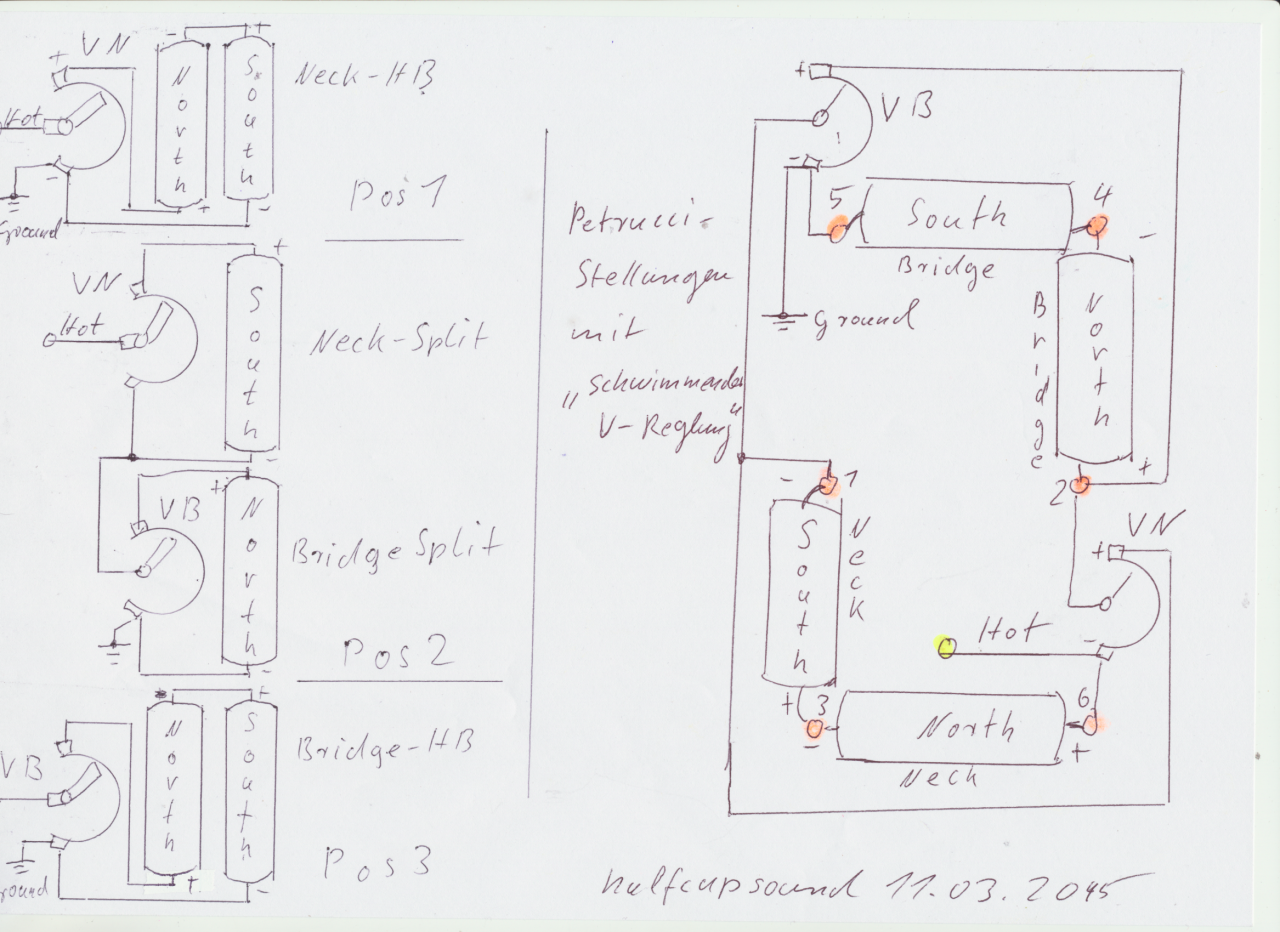 + VN
- +
North
South
Neck-HB
Hot
-
+ -
Ground
Pos 1
+
VN
Hot
South
Neck-Split
-
+
VB
North
Bridge Split
-
Pos 2
+
North
South
Bridge-HB
VB
+ -
round
Pos 3
Petrucci-
Stellungen
mit
„Schwimmender
V-Reglung"
+
VB
-
5
South
4
-
Bridge
Ground
Bridge
North
+
2
- 1
South
Neck
VN
+
Hot
-
+ 3
-
North
6
+
Neck
halfcupsound 11.03.2045